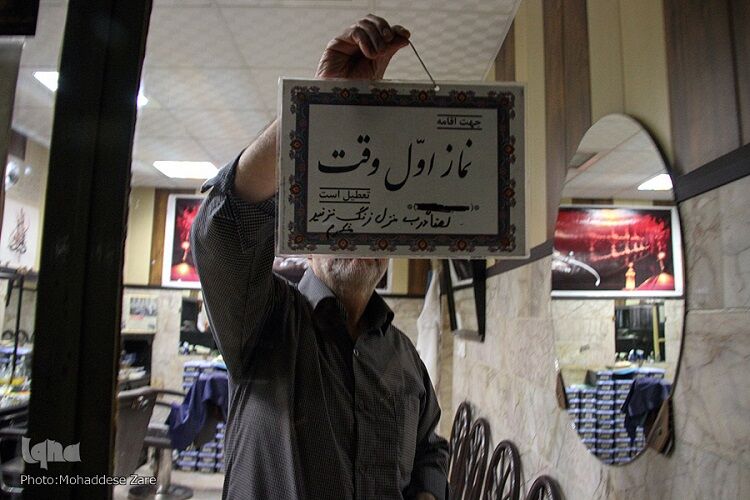 جهت اقامه
نماز اوّل وقت
تعطیل است
لطفاً درب منزل زنگ نزنید
iqna
Photo:Mohaddese Zare